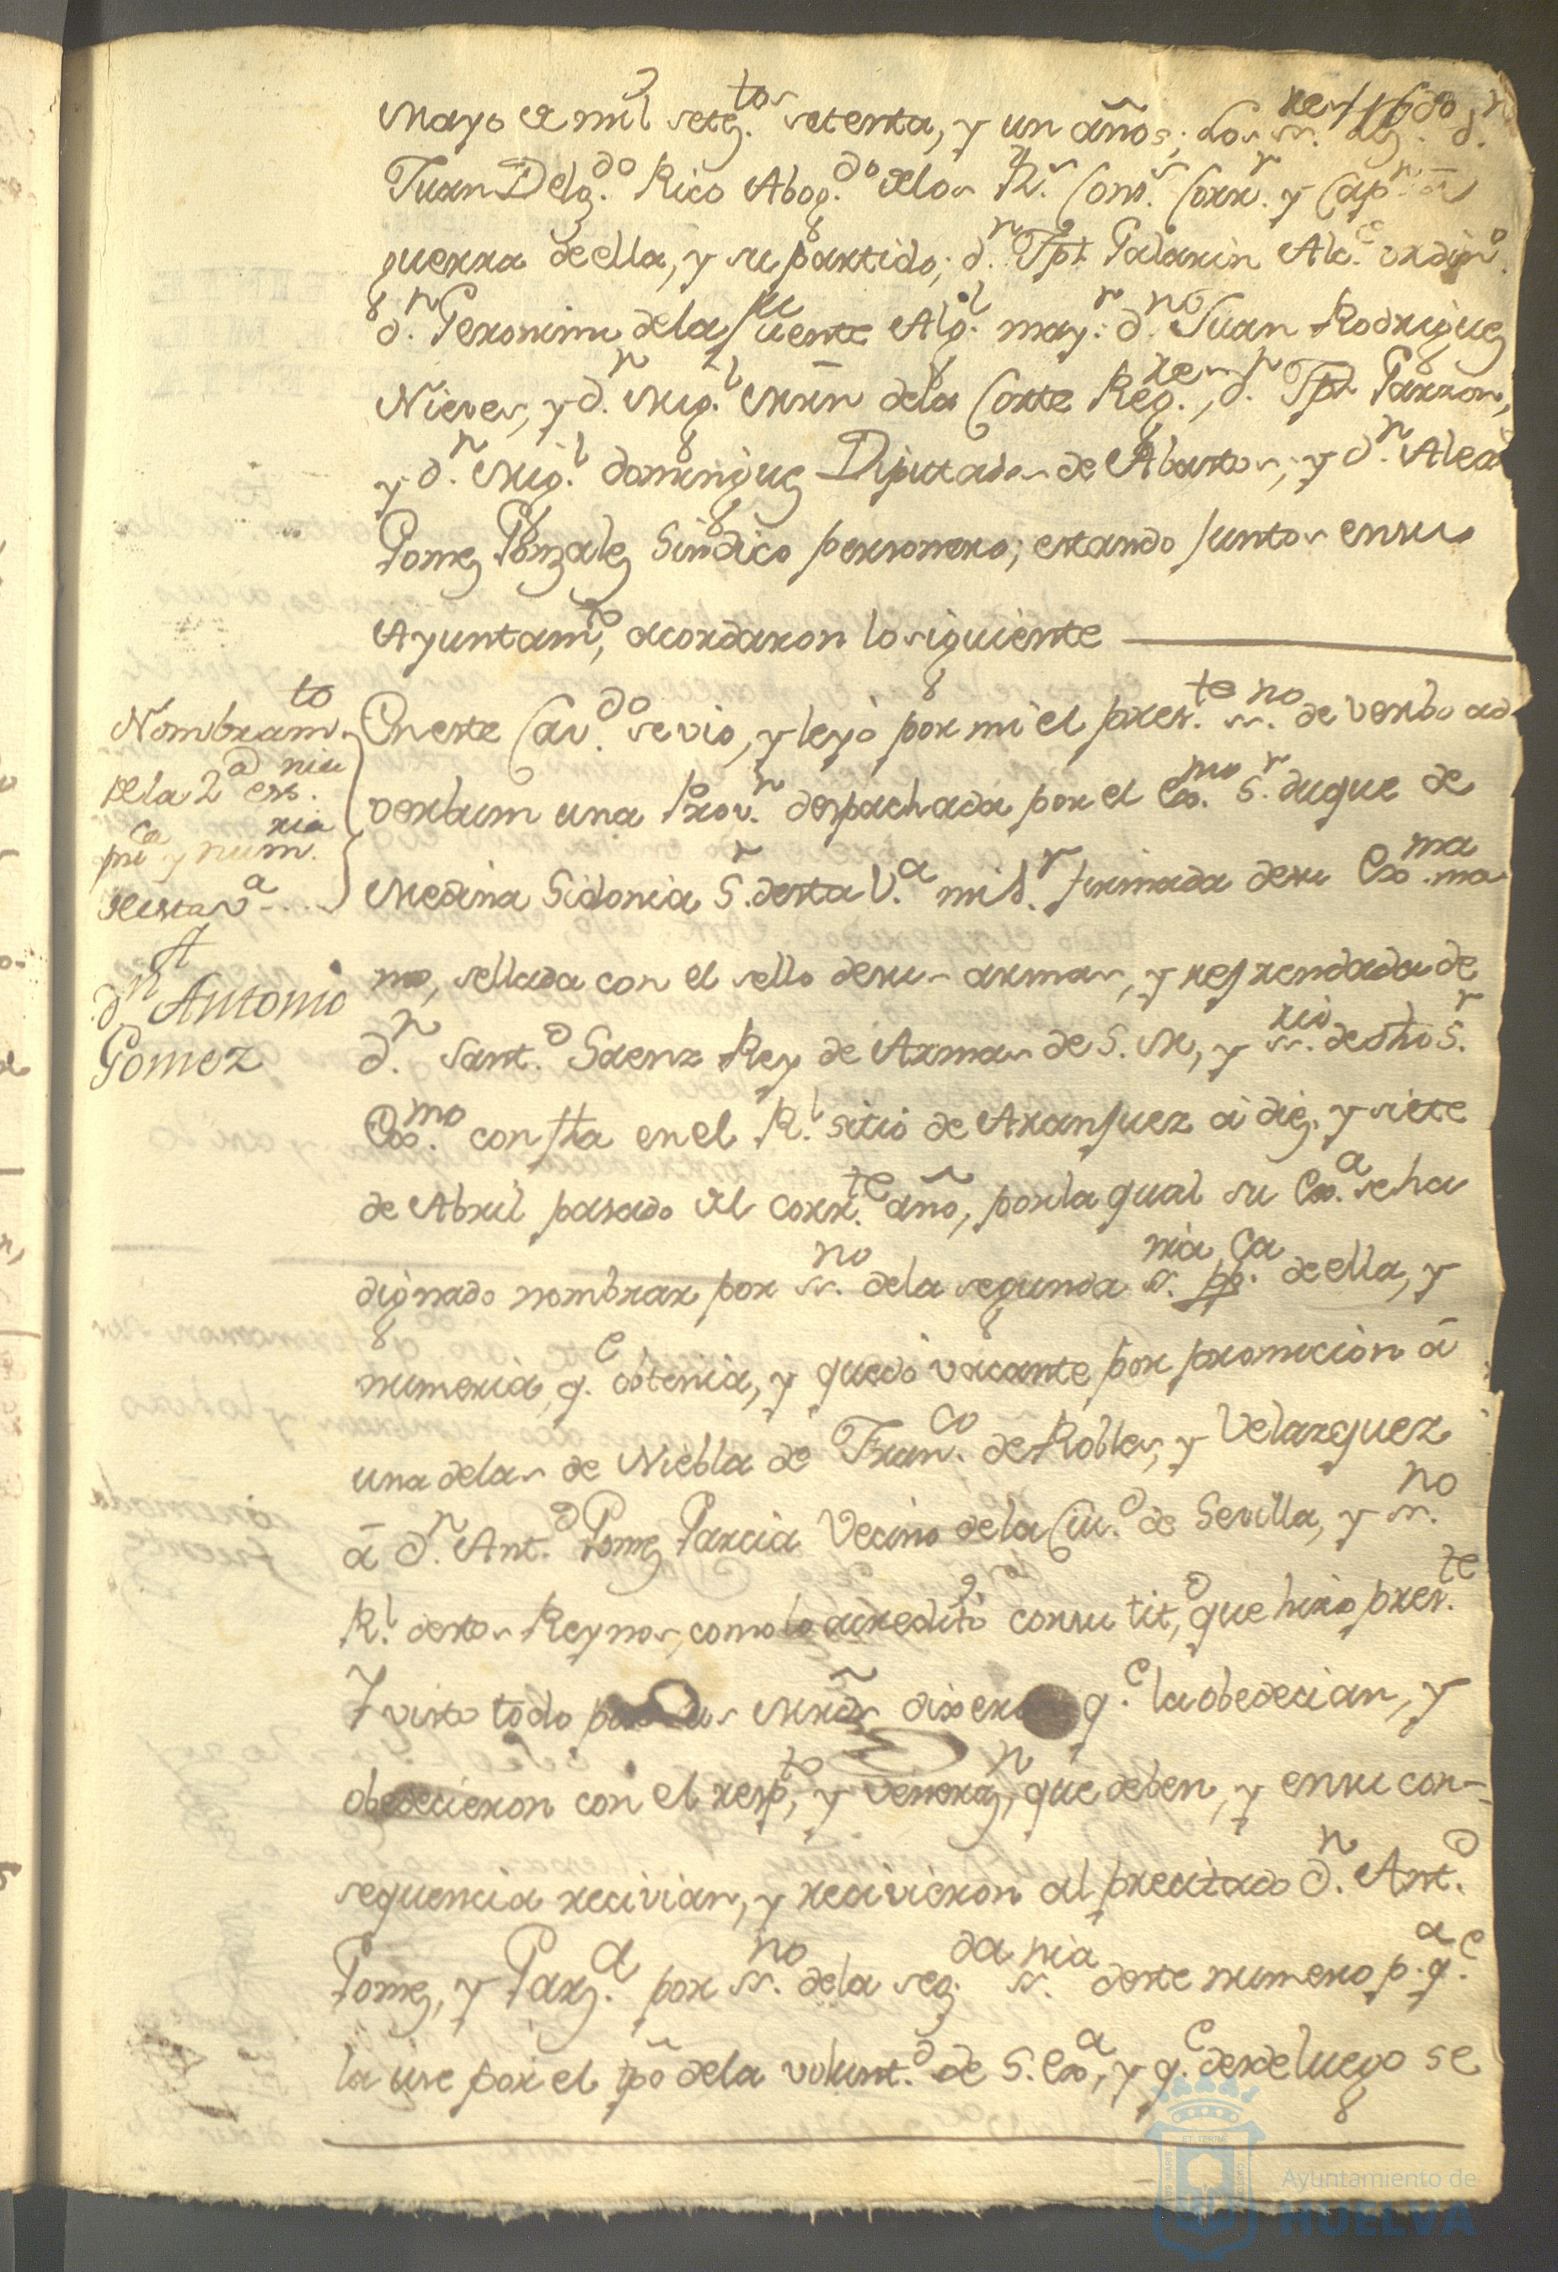 Mayo de mil seteg.tos setenta, y un años; los ss.res Dn
Juan Delg.do Rico Abog.do delos R.s Cons.s Corr.r y Cap.n a
guerra deella, y su partido; d.n Jph Galarin Alc.e ordin.o
d.n Geronimo dela fuente Alg.l may.r d.n Juan Rodriguez
Nieves, y d.n Mig.l Mrn dela Corte Reg.res, d.n Jph Garzon,
y d.n Mig.l dominguez Diputados de Abastos; y d.n Alex.
Gomez Gonzalez Sindico personero; estando juntos ensu
Ayuntam.to, acordaron losiguiente
Nombram.to
dela 2.a ess.nia
pu.ca y num.ria
destav.a
A
d.n Antonio
Gomez
En este Cav.do sevio, y leyò por mi el pres.te ss.no de verbo ad
verbum una Prov.n despachada por el Exo.mo S.r duque de
Medina Sidonia S.r desta V.a mi S.r firmada desu Exo.ma ma
no, sellada con el sello desus armas, y refrendada de
d.n Sant.o Saenz Rey de Armas de S. M, y ss.rio de dho S.r
Exo.mo con fha en el R.l sitio de Aranjuez à diez, y siete
de Abril pasado del corr.te año, porla qual su Exo.a seha
dignado nombrar por ss.no dela segunda ss.nia pp.ca de ella, y
numeria, q.e obtenia, y quedò vacante por promocion â
una delas de Niebla de Fran.co de Robles, y Velazquez
â d.n Ant.o Gomez Garcia Vecino dela Ciu.d de Sevilla, y ss.no
R.l destos Reynos, como lo acreditò consu tit.o, que hizo pres.te
Y visto todo por sus Mrds dixeron q.e la obedecian, y
obedecieron con el resp.to, y veneraz.n, que deben, y ensu con-
sequencia recivian, y recivieron al precitado d.n Ant.o
Gomez, y Garz.a por ss.no dela seg.da ss.nia deste numero p.a q.e
la use por el tpo dela volunt.d de S. Exo.a, y q.e desdeluego se
Ayuntamiento de
HUELVA